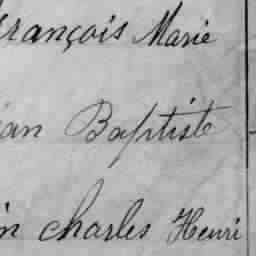 françois Marie
an Baptiste
n charles Henri